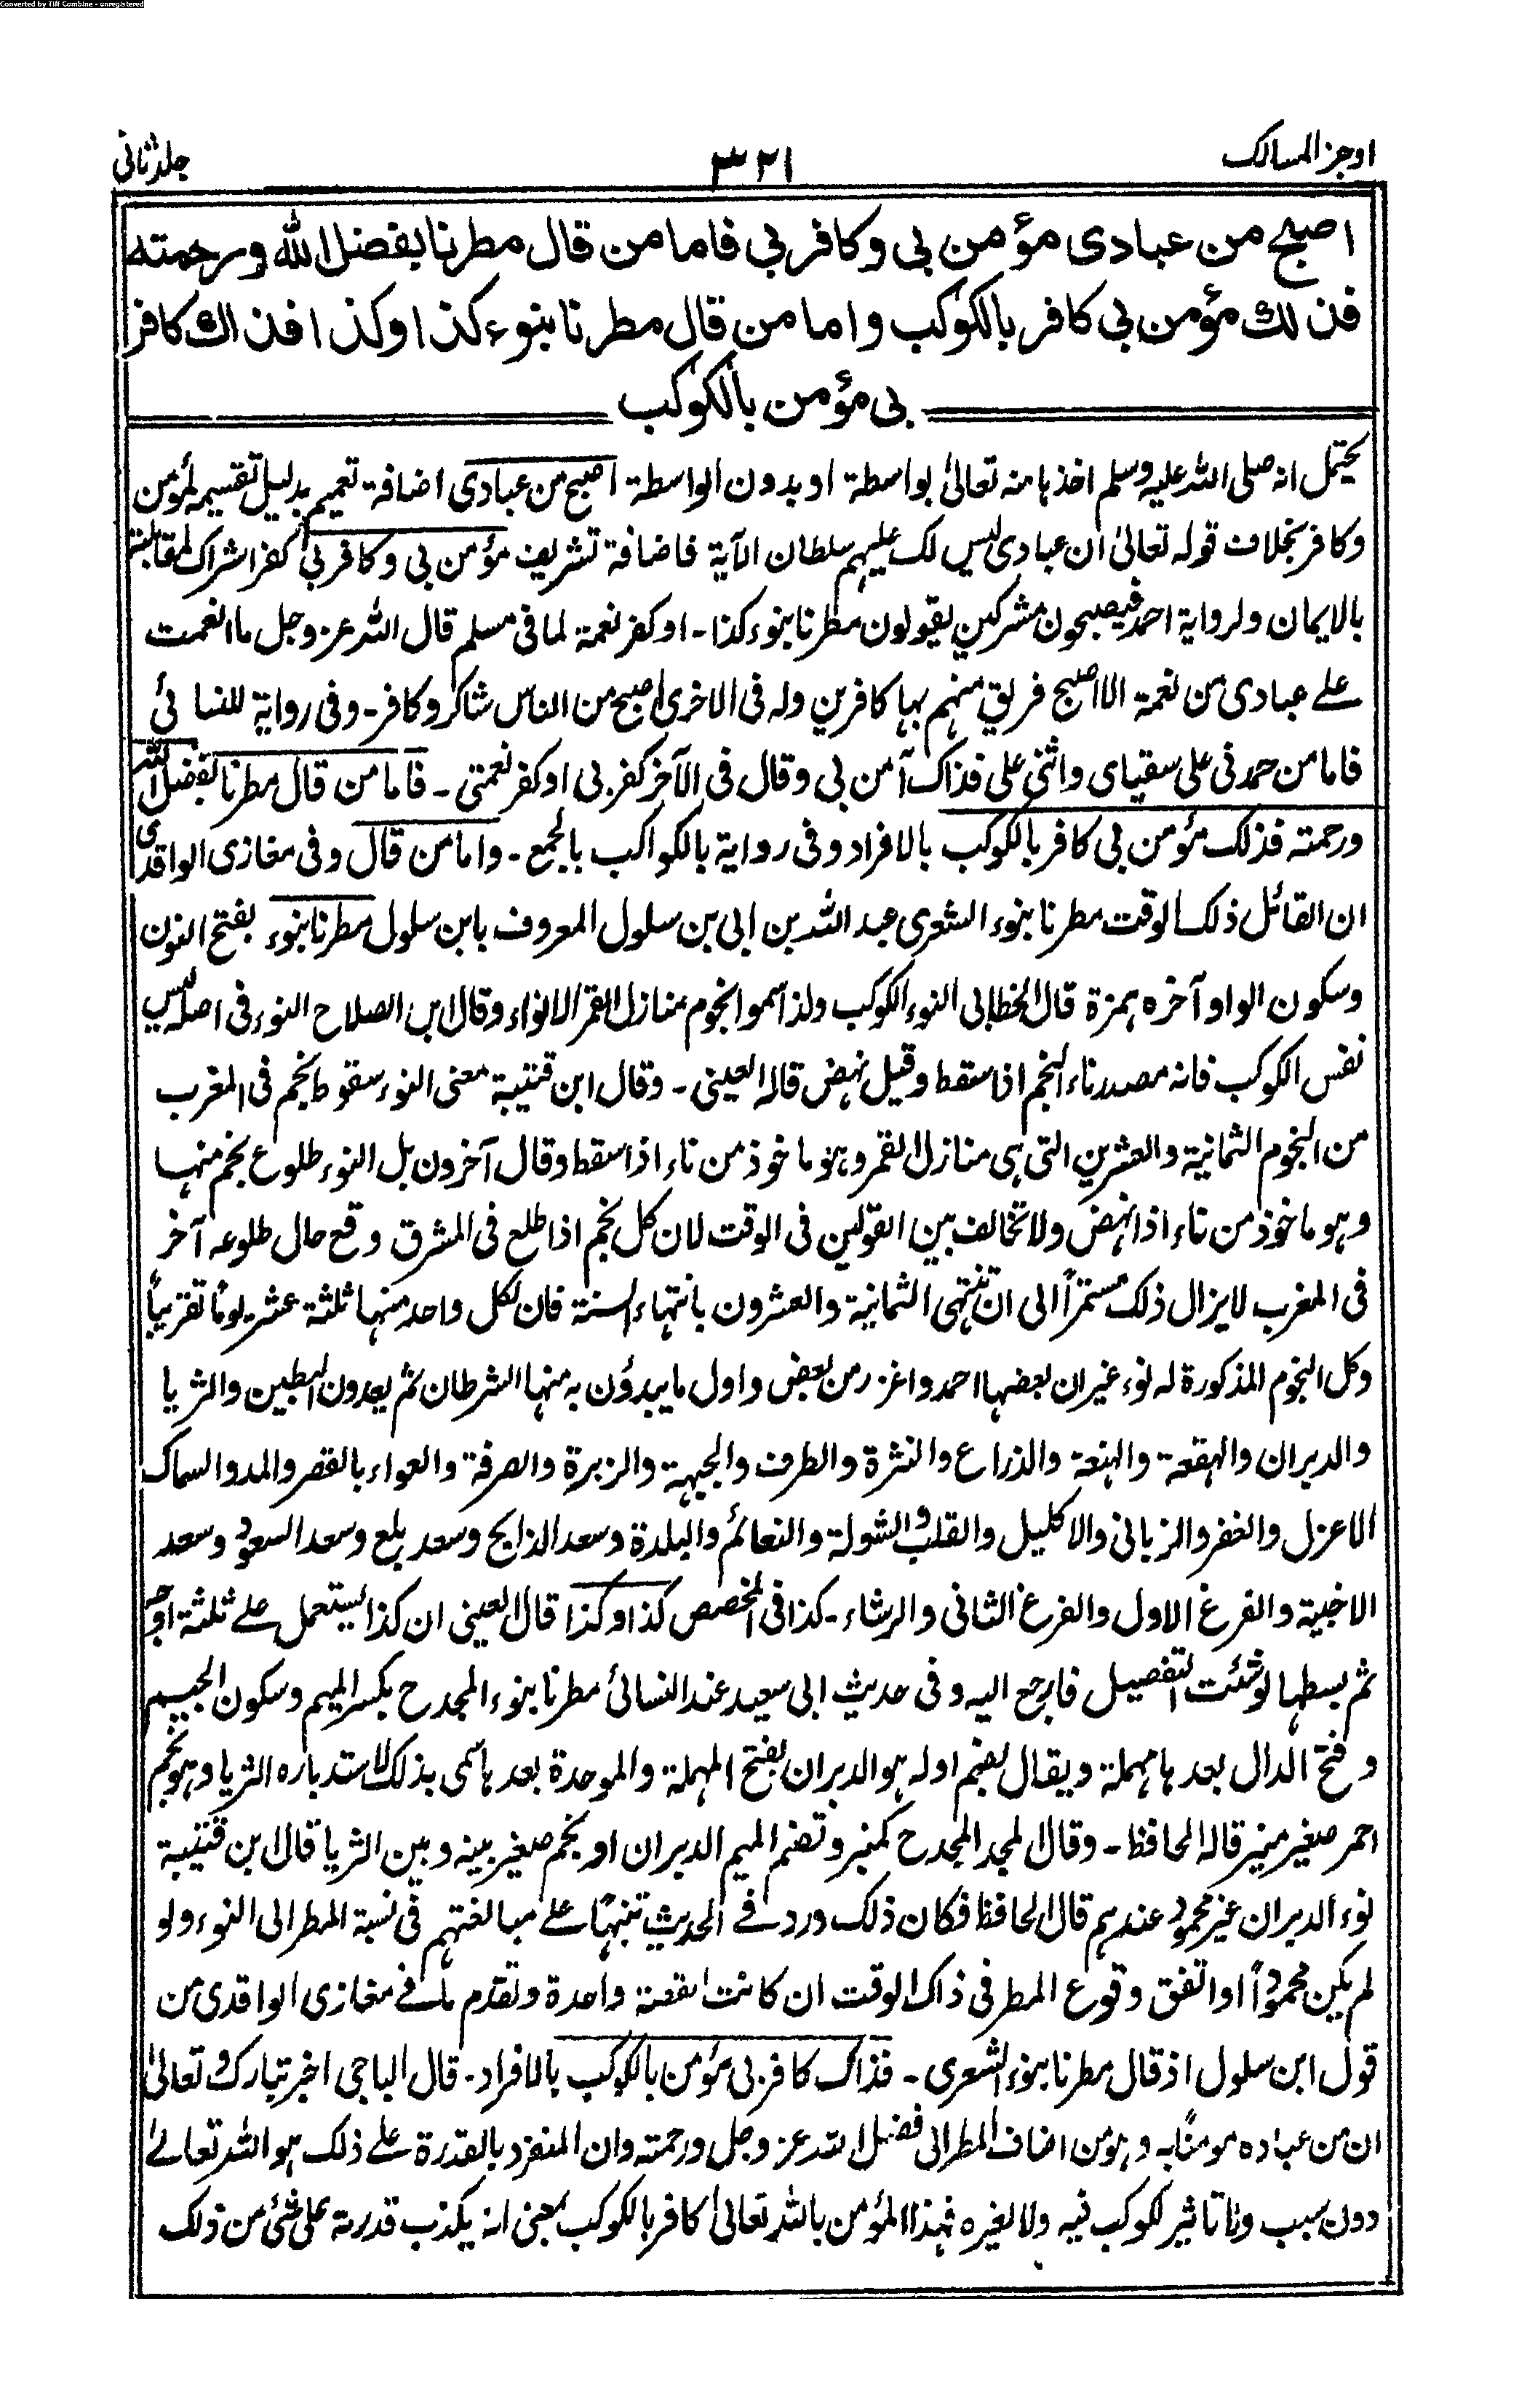 Converted by Tiff Combine - unregistered
اوجز المسالک
٣٢١
جلد ثانی
اصبح من عبادى مؤمن بى وكافر بى فاما من قال مطرنا بفضل الله ورحمته
فذلك مؤمن بى كافر بالكوكب واما من قال مطرنا بنوء كذا وكذا فذاك كافر
بى مؤمن بالكوكب
يحتمل انه صلى الله عليه وسلم اخذها منه تعالىٰ بواسطة او بدون الواسطة اصبح من عبادى اضافة تعميم بدليل تقسيمه لمؤمن
وكافر بخلاف قوله تعالىٰ ان عبادى ليس لك عليهم سلطان الآية فاضافة تشريف مؤمن بى وكافر بى كفر اشراك لمقابلته
بالايمان ولرواية احمد فيصبحون مشركين يقولون مطرنا بنوء كذا۔ او كفر نعمة لما فى مسلم قال الله عز وجل ما انعمت
علے عبادى من نعمة الا اصبح فريق منهم بها كافرين وله فى الاخرى اصبح من الناس شاكر وكافر۔ وفى رواية للنسائى
فاما من حمدنى على سقياى واثنى على فذاك آمن بى وقال فى الآخر كفر بى او كفر نعمتى۔ فاما من قال مطرنا بفضل الله
ورحمته فذلك مؤمن بى كافر بالكوكب بالافراد وفى رواية بالكواكب بالجمع۔ واما من قال وفى مغازى الواقدى
ان القائل ذلك الوقت مطرنا بنوء الشعرى عبد الله بن ابى بن سلول المعروف بابن سلول مطرنا بنوء بفتح النون
وسكون الواو آخره همزة قال الخطابى النوء الكوكب ولذا سموا نجوم منازل القمر الانواء وقال ابن الصلاح النوء فى اصله ليس
نفس الكوكب فانه مصدر ناء النجم اذا سقط وقيل نهض قاله العينى۔ وقال ابن قتيبة معنى النوء سقوط نجم فى المغرب
من النجوم الثمانية والعشرين التى هى منازل القمر وهو ماخوذ من ناء اذا سقط وقال آخرون بل النوء طلوع نجم منها
وهو ماخوذ من ناء اذا نهض ولا تخالف بين القولين فى الوقت لان كل نجم اذا طلع فى المشرق وقع حال طلوعه آخر
فى المغرب لا يزال ذلك مستمراً الى ان تنتهى الثمانية والعشرون بانتهاء السنة فان لكل واحد منها ثلثة عشر يوماً تقريباً
وكل النجوم المذكورة له نوء غير ان بعضها احمد واغزر من بعض واول ما يبدؤن به منها الشرطان ثم يعدون البطين والثريا
والدبران والهقعة والهنعة والذراع والنثرة والطرف والجبهة والزبرة والصرفة والعواء بالقصر والمد والسماك
الاعزل والغفر والزبانى والاكليل والقلب والشولة والنعائم والبلدة وسعد الذابح وسعد بلع وسعد السعود وسعد
الاخبية والفرغ الاول والفرغ الثانى والرشاء۔ كذا فى المخصص كذا وكذا قال العينى ان كذا يستعمل علے ثلثة اوجه
ثم بسطها لو شئت التفصيل فارجع اليه وفى حديث ابى سعيد عند النسائى مطرنا بنوء المجدح بكسر الميم وسكون الجيم
وفتح الدال بعدها مهملة ويقال بضم اوله هو الدبران بفتح المهملة والموحدة بعدها سمى بذلك لاستدباره الثريا وهو نجم
احمر صغير منير قاله الحافظ۔ وقال المجد المجدح كمنبر وتضم الميم الدبران او نجم صغير بينه وبين الثريا قال ابن قتيبة
نوء الدبران غير محمود عندهم قال الحافظ فكان ذلك ورد فے الحديث تنبيهاً علے مبالغتهم فى نسبة المطر الى النوء ولو
لم يكن محموداً او اتفق وقوع المطر فى ذاك الوقت ان كانت القصة واحدة وتقدم ما فے مغازى الواقدى من
قول ابن سلول اذ قال مطرنا بنوء الشعرى۔ فذاك كافر بى مؤمن بالكوكب بالافراد۔ قال الباجى اخبر تبارك وتعالىٰ
ان من عباده مومناً به وهو من اضاف المطر الى فضل الله عز وجل ورحمته وان المنفرد بالقدرة علے ذلك هو الله تعالےٰ
دون سبب ولا تاثير لكوكب فيه ولا لغيره فهذا المؤمن بالله تعالىٰ كافر بالكوكب بمعنى انه يكذب قدرته على شئ من ذلك